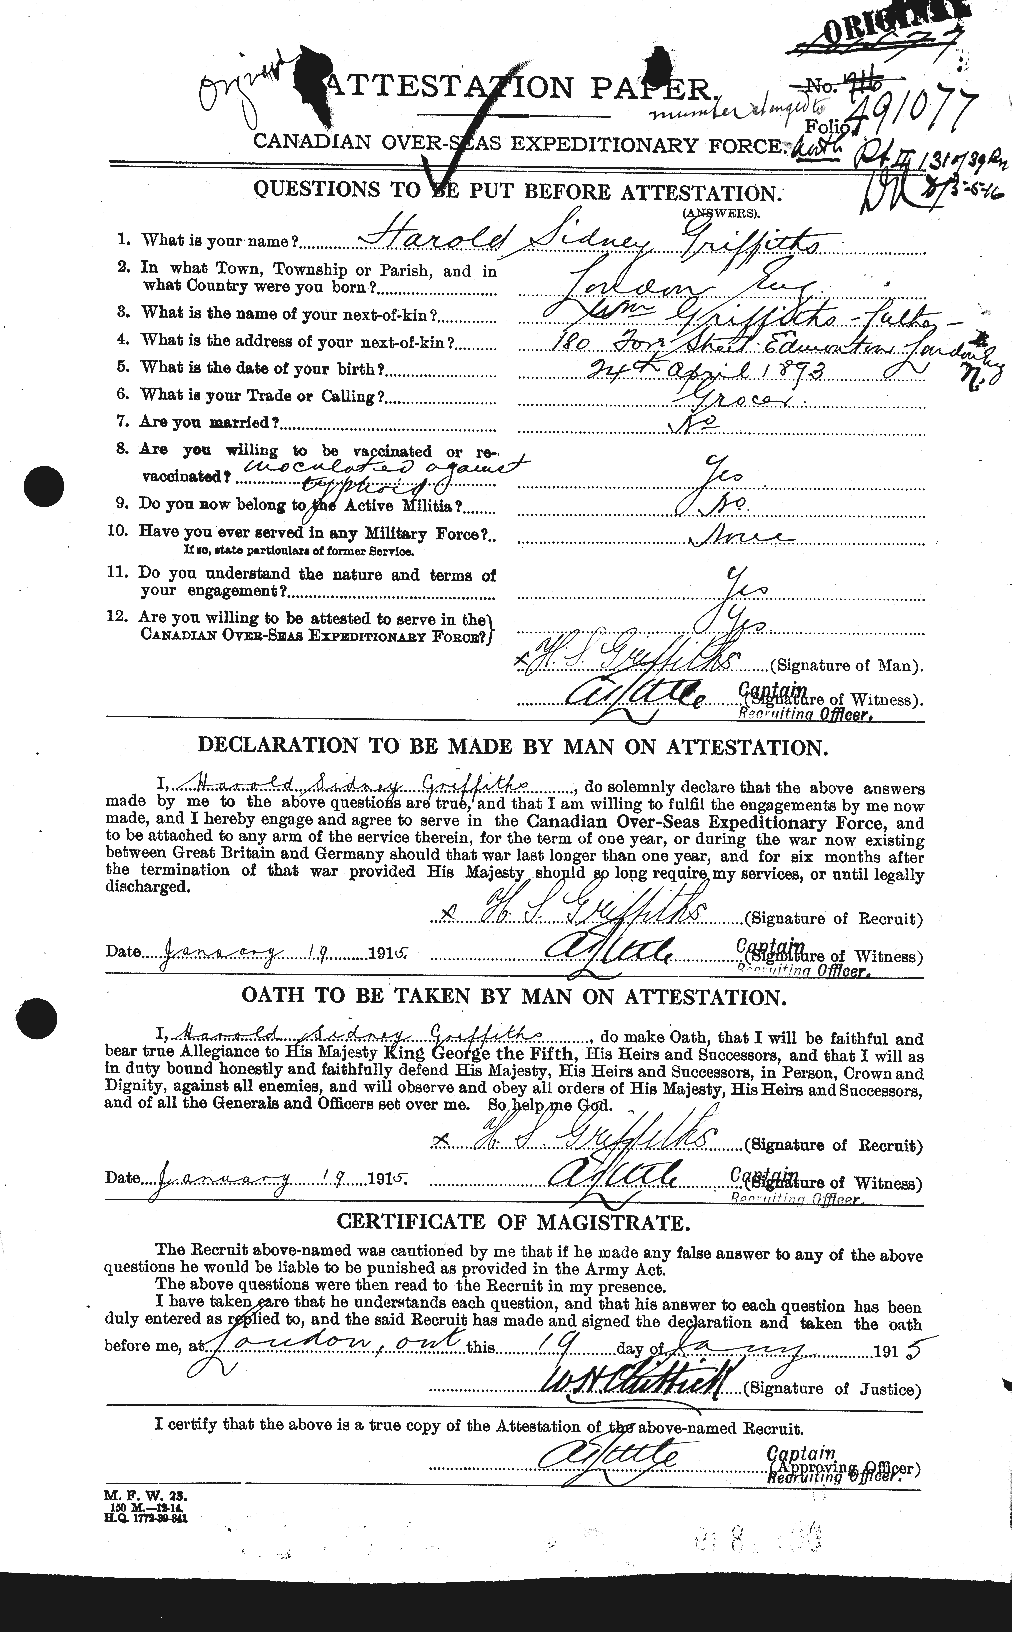 ORIGINAL
Original
ATTESTATION PAPER.
No.
number changed to
491077
Folio.
CANADIAN OVER-SEAS EXPEDITIONARY FORCE.
auth Pt. II 131 of 39 Rn
QUESTIONS TO BE PUT BEFORE ATTESTATION.
(ANSWERS).
1. What is your name? Harold Sidney Griffiths
2. In what Town, Township or Parish, and in
what Country were you born? London Eng
3. What is the name of your next-of-kin? Wm Griffiths - father -
4. What is the address of your next-of-kin? 180 Fore Street Edmonton London Eng
N.
5. What is the date of your birth? 24th April 1893
6. What is your Trade or Calling? Grocer.
7. Are you married? No
8. Are you willing to be vaccinated or re-
vaccinated? inoculated against Yes
typhoid
9. Do you now belong to the Active Militia? No.
10. Have you ever served in any Military Force? None
If so, state particulars of former Service.
11. Do you understand the nature and terms of
your engagement? Yes
12. Are you willing to be attested to serve in the
CANADIAN OVER-SEAS EXPEDITIONARY FORCE? Yes
x H. S. Griffiths (Signature of Man).
Captain
(Signature of Witness).
Recruiting Officer.
DECLARATION TO BE MADE BY MAN ON ATTESTATION.
I, Harold Sidney Griffiths, do solemnly declare that the above answers
made by me to the above questions are true, and that I am willing to fulfil the engagements by me now
made, and I hereby engage and agree to serve in the Canadian Over-Seas Expeditionary Force, and
to be attached to any arm of the service therein, for the term of one year, or during the war now existing
between Great Britain and Germany should that war last longer than one year, and for six months after
the termination of that war provided His Majesty should so long require my services, or until legally
discharged.
x H S Griffiths (Signature of Recruit)
Captain
Date January 19 1915. (Signature of Witness)
Recruiting Officer.
OATH TO BE TAKEN BY MAN ON ATTESTATION.
I, Harold Sidney Griffiths, do make Oath, that I will be faithful and
bear true Allegiance to His Majesty King George the Fifth, His Heirs and Successors, and that I will as
in duty bound honestly and faithfully defend His Majesty, His Heirs and Successors, in Person, Crown and
Dignity, against all enemies, and will observe and obey all orders of His Majesty, His Heirs and Successors,
and of all the Generals and Officers set over me. So help me God.
x H S Griffiths (Signature of Recruit)
Captain
Date January 19 1915. (Signature of Witness)
Recruiting Officer.
CERTIFICATE OF MAGISTRATE.
The Recruit above-named was cautioned by me that if he made any false answer to any of the above
questions he would be liable to be punished as provided in the Army Act.
The above questions were then read to the Recruit in my presence.
I have taken care that he understands each question, and that his answer to each question has been
duly entered as replied to, and the said Recruit has made and signed the declaration and taken the oath
before me, at London, ont this 19 day of Jany 1915
W H Chittick (Signature of Justice)
I certify that the above is a true copy of the Attestation of the above-named Recruit.
Captain
(Approving Officer)
Recruiting Officer.
M. F. W. 23.
150 M.—12-14.
H.Q. 1772-39-841